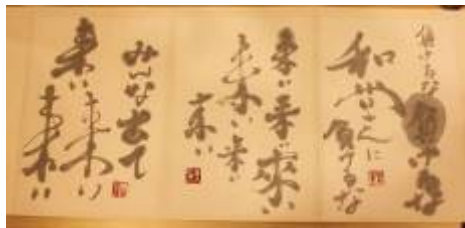 負けるな 負けるな
和尚さんに
負けるな
来い来い来い
来い来い
来い
みんな出て
来い来い
来い